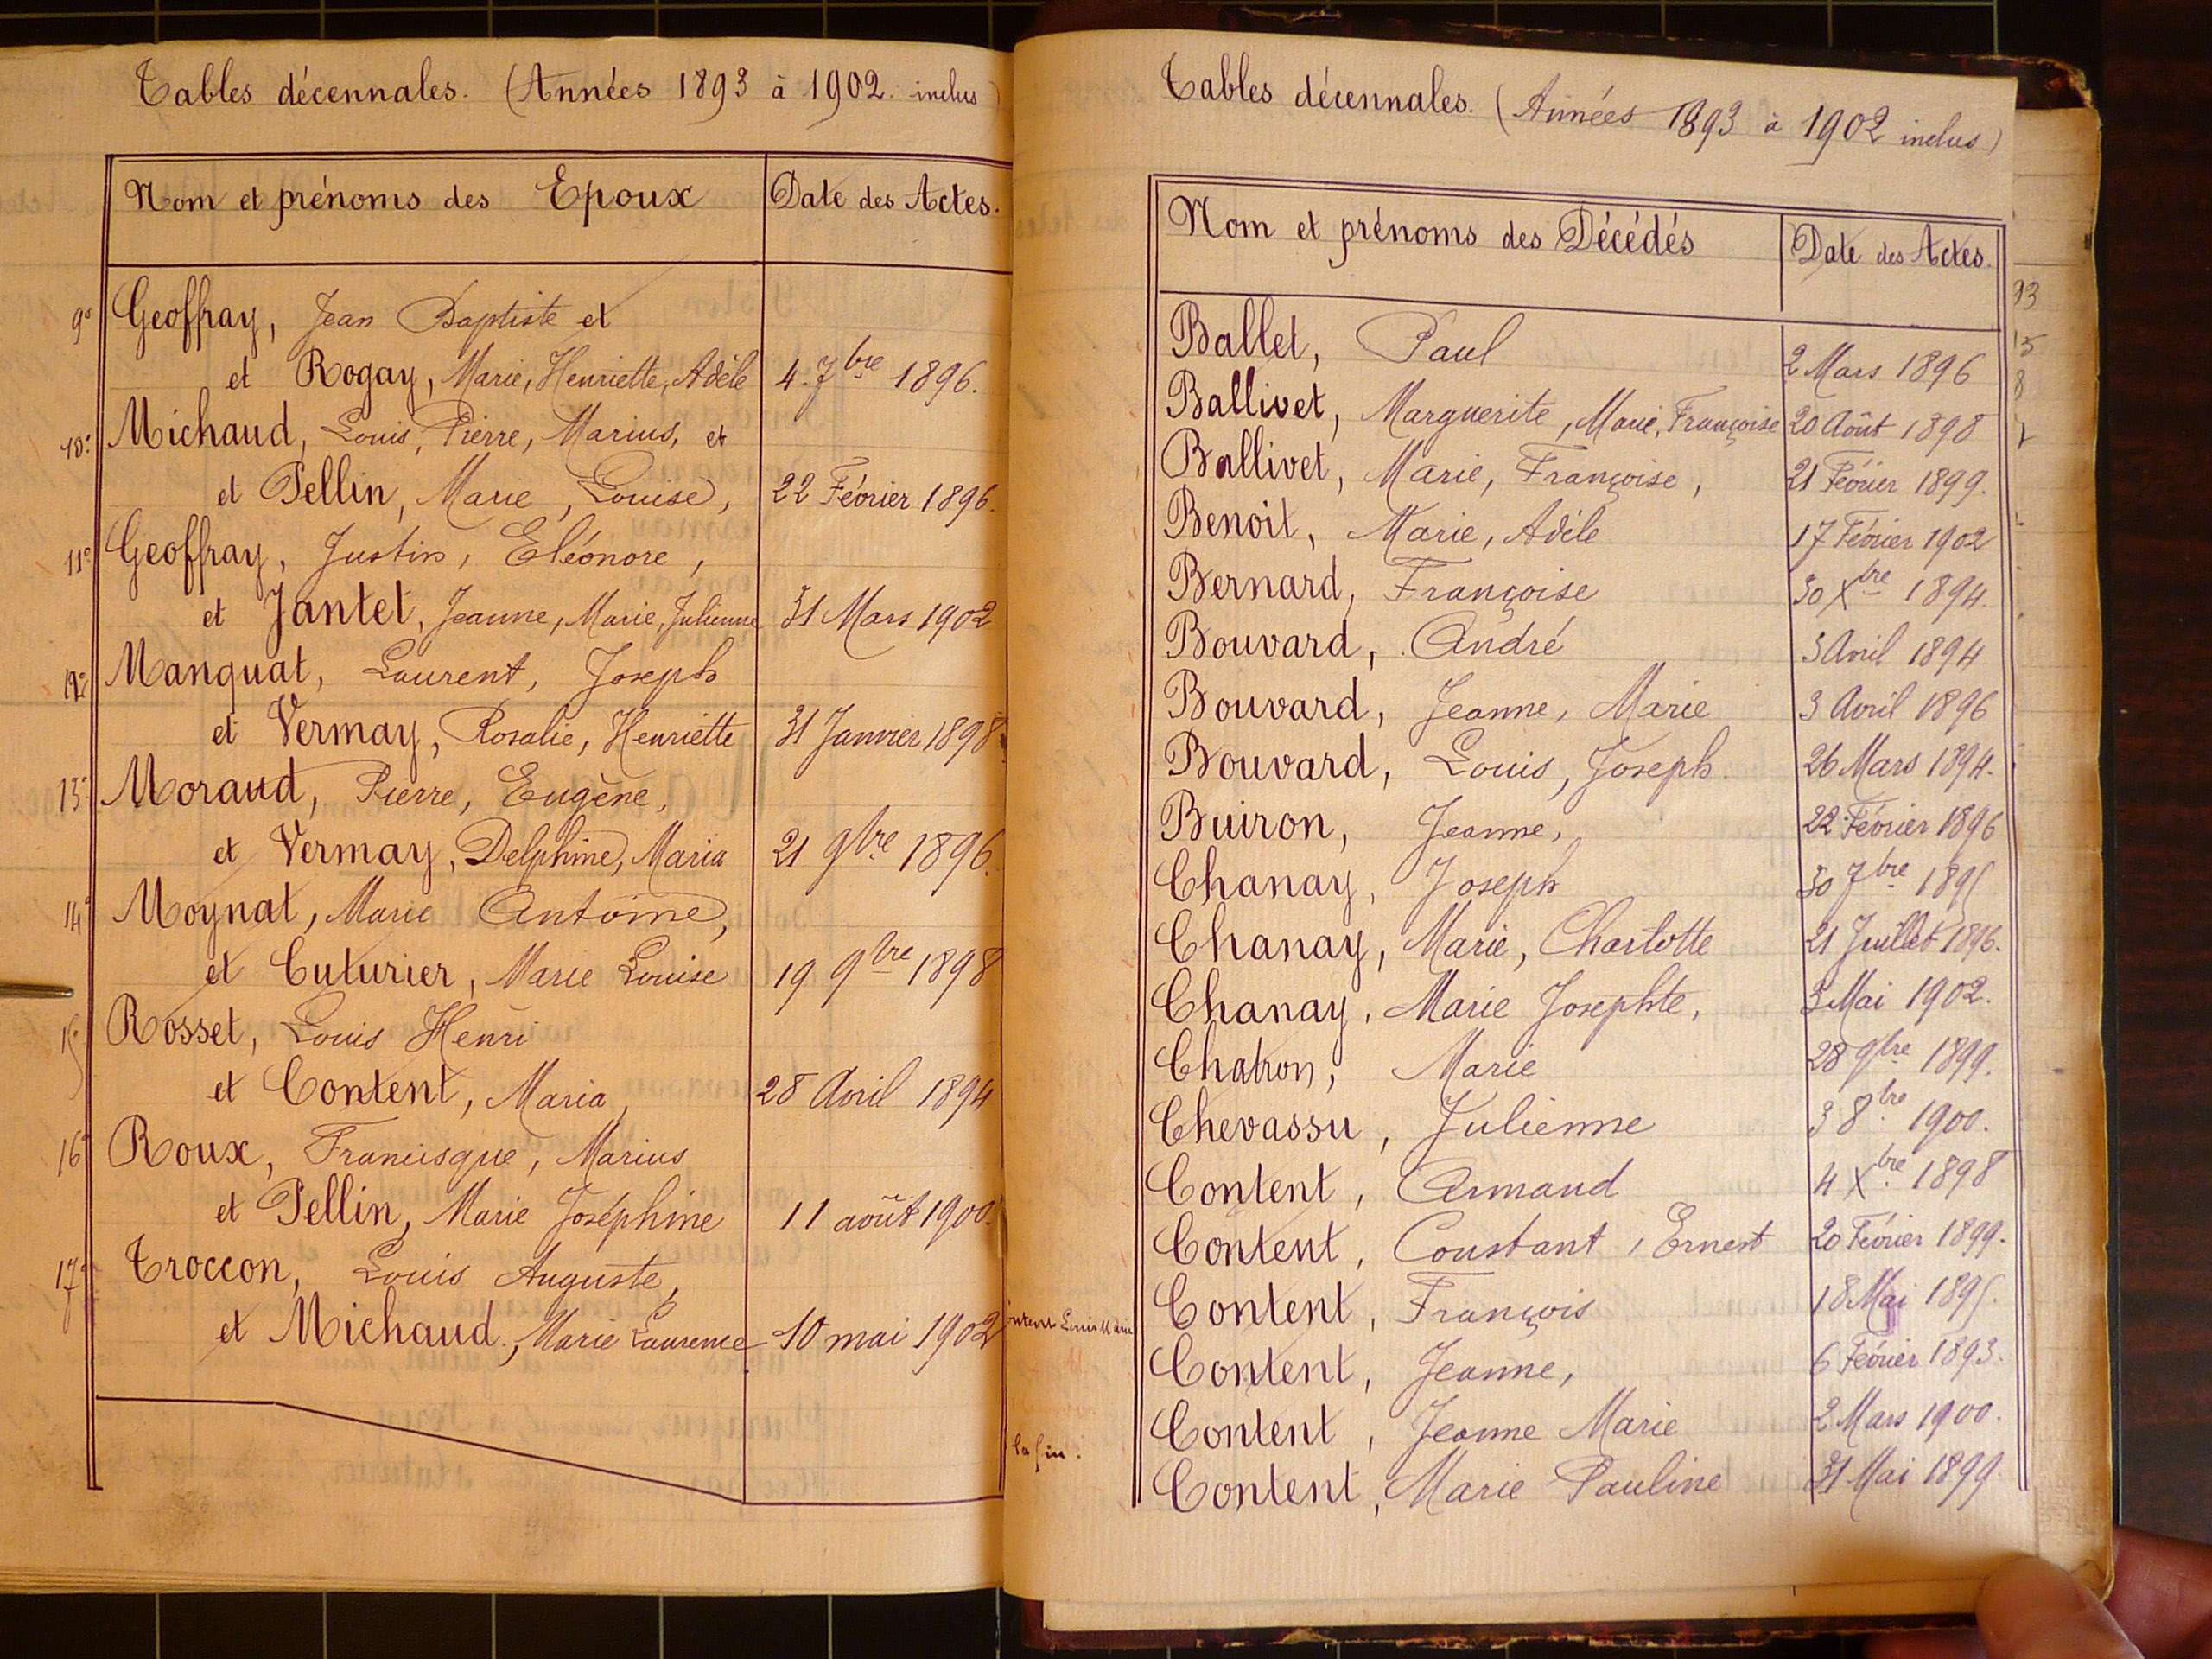 Tables décennales. (Années 1893 à 1902 inclus)
Nom et prénoms des Epoux Date des Actes.
9° Geoffray, Jean Baptiste et
et Rogay, Marie, Henriette, Adèle 4. 7bre 1896.
10° Michaud, Louis, Pierre, Marius, et
et Pellin, Marie, Louise, 22 Février 1896.
11° Geoffray, Justin, Eléonore,
et Jantet, Jeanne, Marie, Julienne 31 Mars 1902
12° Manquat, Laurent, Joseph
et Vermay, Rosalie, Henriette 31 Janvier 1898
13° Moraud, Pierre, Eugène,
et Vermay, Delphine, Maria 21 9bre 1896.
14° Moynat, Marie Antoine,
et Cuturier, Marie Louise 19 9bre 1898
15° Rosset, Louis Henri
et Content, Maria, 28 Avril 1894
16° Roux, Francisque, Marius
et Pellin, Marie Joséphine 11 août 1900.
17° Troccon, Louis Auguste,
et Michaud, Marie Laurence 10 mai 1902
Tables décennales. (Années 1893 à 1902 inclus)
Nom et prénoms des Décédés Date des Actes.
Ballet, Paul 2 Mars 1896
Ballivet, Marguerite, Marie, Françoise 20 Août 1898
Ballivet, Marie, Françoise, 21 Février 1899.
Benoit, Marie, Adèle 17 Février 1902
Bernard, Françoise 30 Xbre 1894.
Bouvard, André 3 Avril 1894
Bouvard, Jeanne, Marie 3 Avril 1896
Bouvard, Louis, Joseph. 26 Mars 1894.
Buiron, Jeanne, 22 Février 1896
Chanay, Joseph 30 7bre 1895
Chanay, Marie, Charlotte 21 Juillet 1896.
Chanay, Marie Josephte, 3 Mai 1902.
Chatron, Marie 28 9bre 1899.
Chevassu, Julienne 3 8bre 1900.
Content, Armand 4 Xbre 1898
Content, Constant, Ernest 20 Février 1899.
Content, François 18 Mai 1895.
Content, Jeanne, 6 Février 1893.
Content, Jeanne Marie 2 Mars 1900.
Content, Marie Pauline 31 Mai 1899.
Louis Marie
la fin.